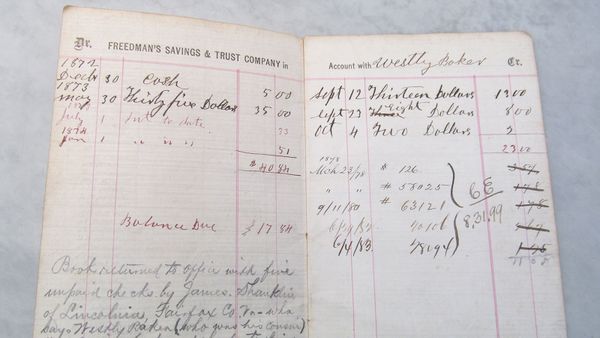 Dr. FREEDMAN'S SAVINGS & TRUST COMPANY in
1872
Decbr 30 cash 5 00
1873
May 30 Thirty five Dollars 35 00
July 1 Int to date. 33
1874
Jan 1 " " " 51
$ 40 84
Balance Due $ 17 84
Book returned to office with five
unpaid checks by James.
of Lincolnia, Fairfax Co. Va - who
says Westly Baker (who was his cousin)
Account with Westly Baker Cr.
Sept 12 Thirteen Dollars 13 00
Sept 23 Three Eight Dollars 8 00
Oct 4 Two Dollars 2
23 00
1878
Mch 23/78 # 126 3 54
" " # 58025
9/11/80 # 63121
6/4/83. 48094
6E
8,31.99